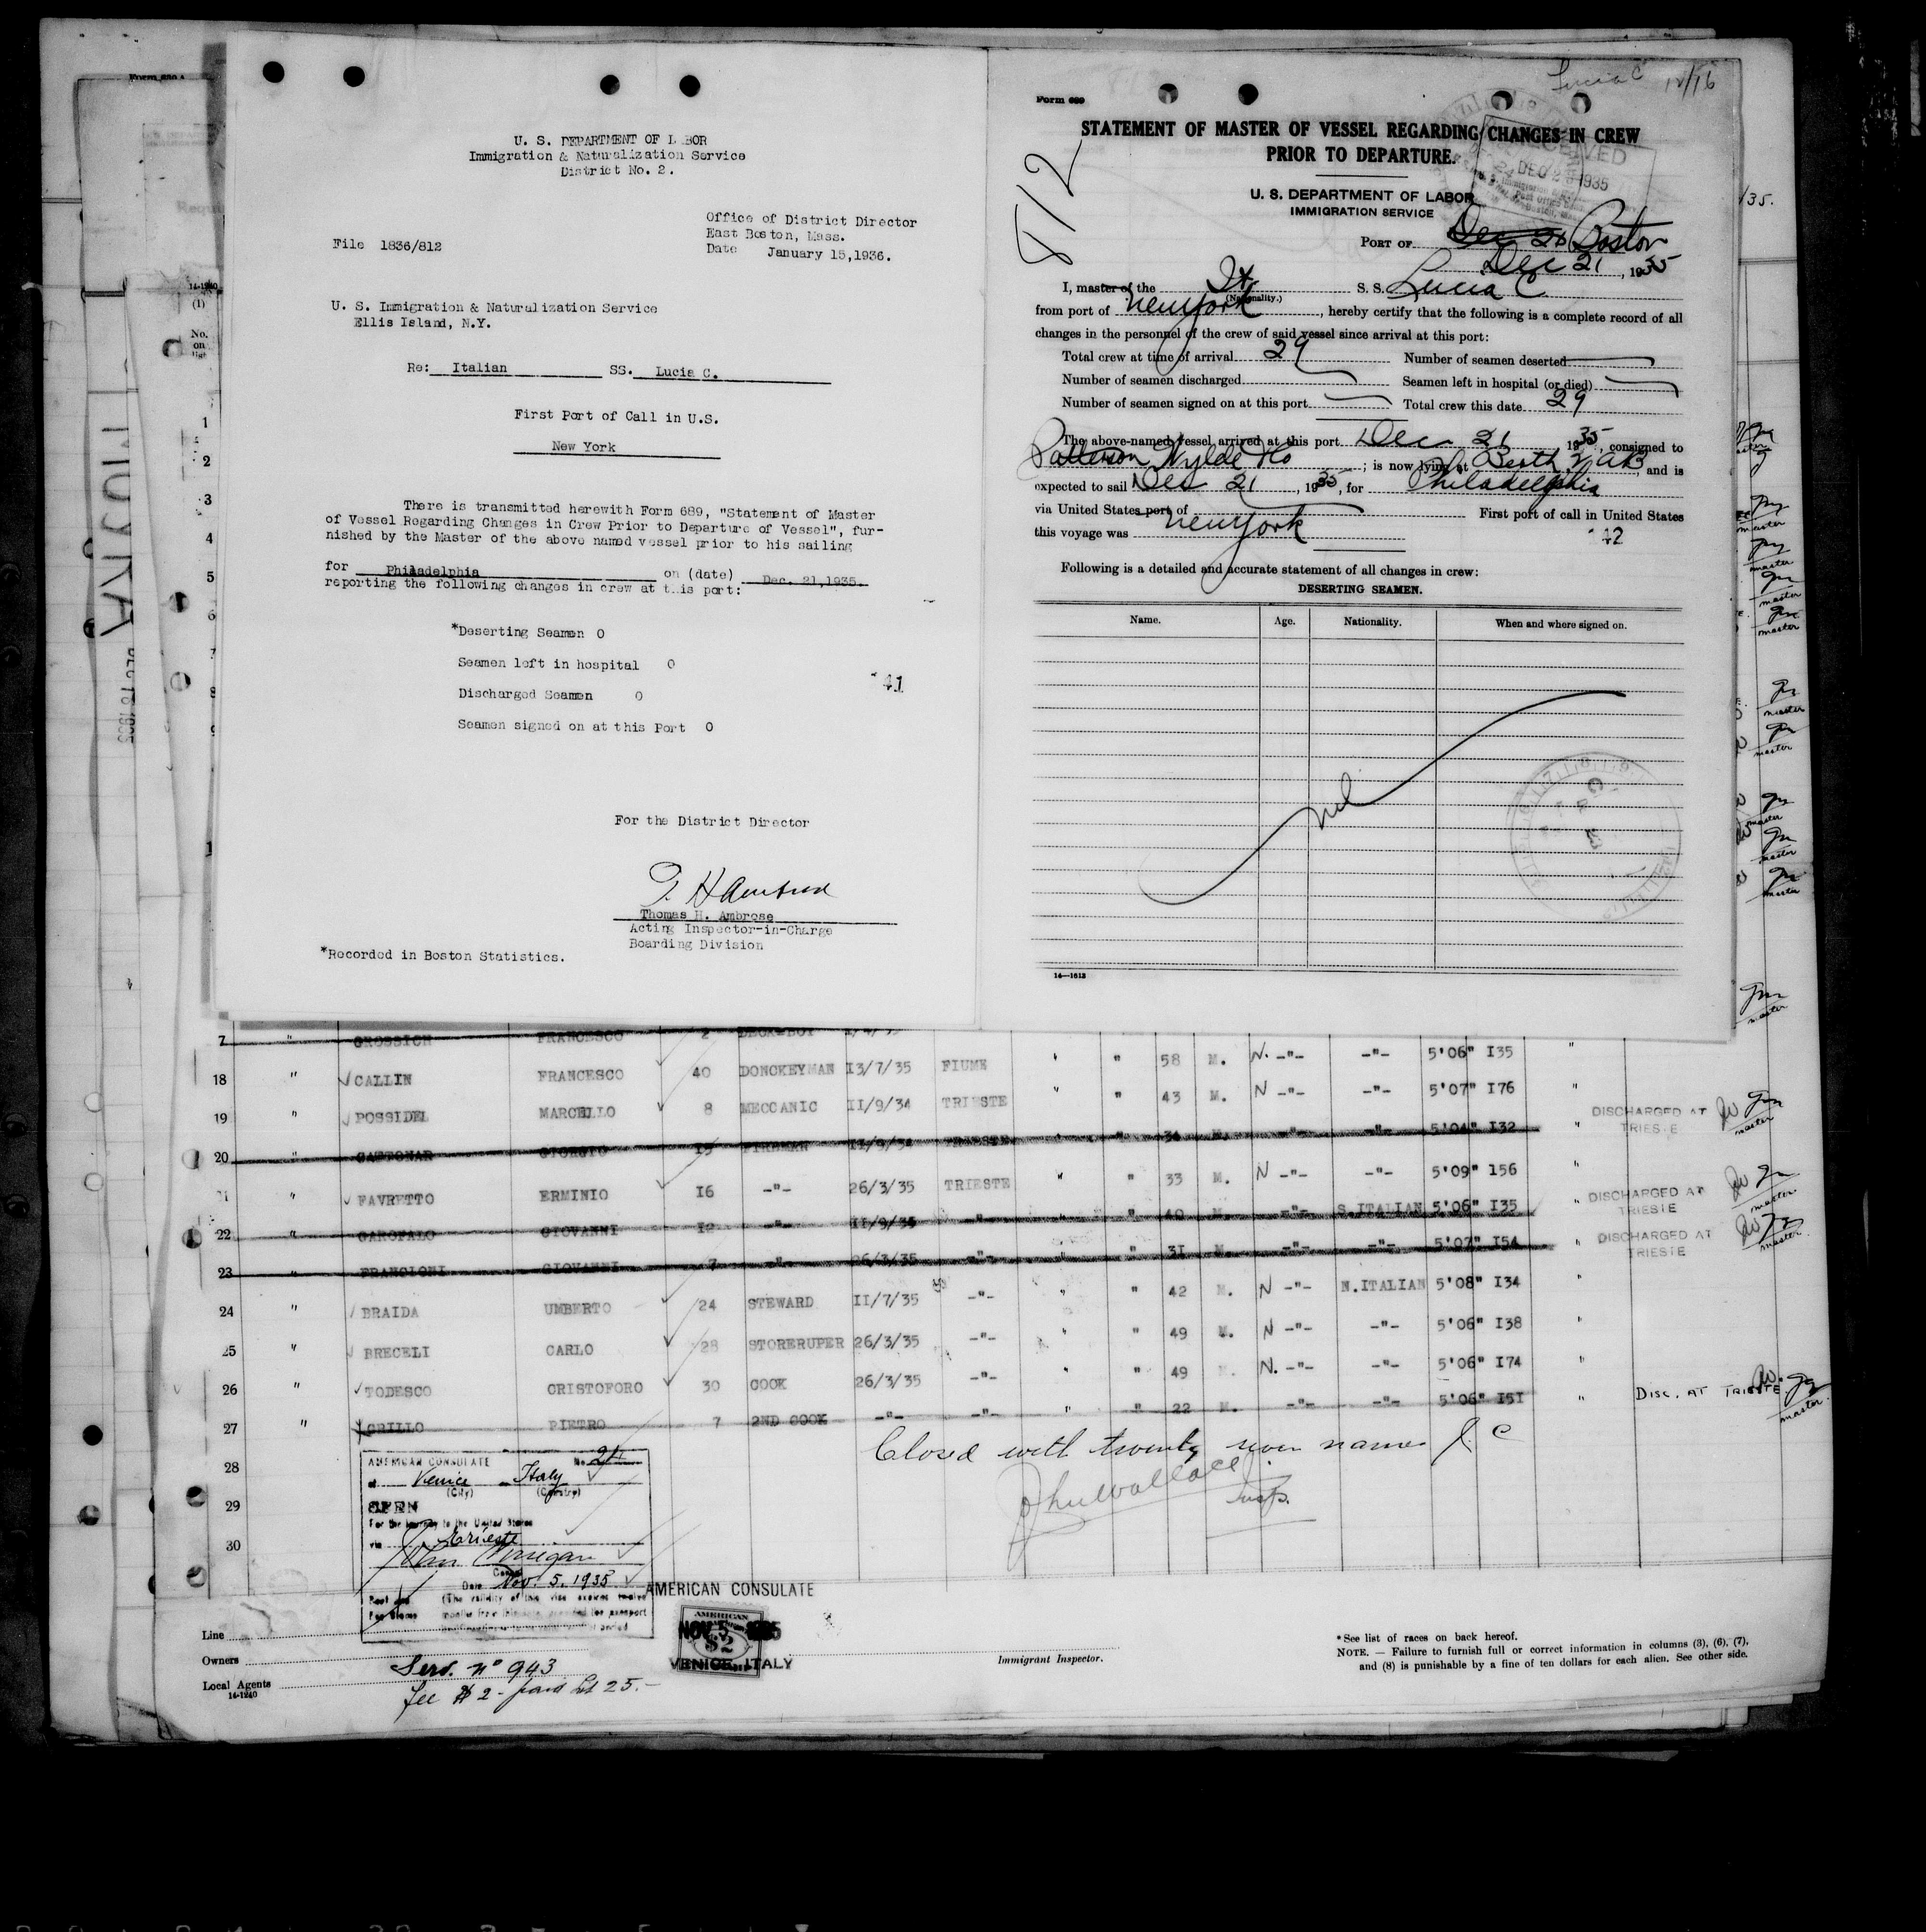 U. S. DEPARTMENT OF LABOR
Immigration & Naturalization Service
District No. 2.
Office of District Director
East Boston, Mass.
File 1836/812
Date January 15,1936.
U. S. Immigration & Naturalization Service
Ellis Island, N.Y.
Re: Italian SS. Lucia C.
First Port of Call in U.S.
New York
There is transmitted herewith Form 689, "Statement of Master
of Vessel Regarding Changes in Crew Prior to Departure of Vessel", fur-
nished by the Master of the above named vessel prior to his sailing
for Philadelphia on (date) Dec. 21,1935.
reporting the following changes in crew at this port:
*Deserting Seamen 0
Seamen left in hospital 0
41
Discharged Seamen 0
Seamen signed on at this Port 0
For the District Director
Thomas H. Ambrose
Acting Inspector-in-Charge
Boarding Division
*Recorded in Boston Statistics.
Lucia C 12/16
Form 689
STATEMENT OF MASTER OF VESSEL REGARDING CHANGES IN CREW
PRIOR TO DEPARTURE.
812
U. S. DEPARTMENT OF LABOR
IMMIGRATION SERVICE
PORT OF Dec 20 Boston
Dec 21, 1935
I, master of the It S. S. Lucia C
(Nationality.)
from port of New York, hereby certify that the following is a complete record of all
changes in the personnel of the crew of said vessel since arrival at this port:
Total crew at time of arrival 29 Number of seamen deserted
Number of seamen discharged Seamen left in hospital (or died)
Number of seamen signed on at this port Total crew this date 29
The above-named vessel arrived at this port Dec 21 1935, consigned to
Patterson Wylde Co; is now lying at Berth, and is
expected to sail Dec 21, 1935, for Philadelphia
via United States port of First port of call in United States
this voyage was New York
42
Following is a detailed and accurate statement of all changes in crew:
DESERTING SEAMEN.
Name. Age. Nationality. When and where signed on.
nil
14—1613
7 " GROSSICH FRANCESCO 2 DECK-BOY
18 " CALLIN FRANCESCO 40 DONCKEYMAN I3/7/35 FIUME " " 58 M. N. -"- -"- 5'06" I35 "
19 " POSSIDEL MARCELLO 8 MECCANIC II/9/34 TRIESTE " " 43 M. N -"- -"- 5'07" I76 "
20 " GIORGIO I5 FIREMAN II/9/34 TRIESTE " " 34 M. -"- -"- 5'04" I32 " DISCHARGED AT TRIESTE
21 " FAVRETTO ERMINIO I6 -"- 26/3/35 TRIESTE " " 33 M. N -"- -"- 5'09" 156 "
22 " GAROFALO GIOVANNI I2 -"- II/9/34 -"- " " 40 M. -"- S.ITALIAN 5'06" I35 " DISCHARGED AT TRIESTE
23 " FRANCIONI GIOVANNI 7 -"- 26/3/35 -"- " " 3I M. -"- -"- 5'07" I54 " DISCHARGED AT TRIESTE
24 " BRAIDA UMBERTO 24 STEWARD II/7/35 -"- " " 42 M. N -"- N.ITALIAN 5'08" I34 "
25 " BRECELI CARLO 28 STORERUPER 26/3/35 -"- " " 49 M. N -"- -"- 5'06" I38 "
26 " TODESCO CRISTOFORO 30 COOK 26/3/35 -"- " " 49 M. N. -"- -"- 5'06" I74 "
27 " GRILLO PIETRO 7 2ND COOK -"- -"- " " 22 M. -"- -"- 5'06" I5I " DISC. AT TRIESTE
28
29
30
Closed with twenty seven names
John Wallace
Insp.
AMERICAN CONSULATE No. 24
at Venice Italy
(City) (Country)
SEEN
For the journey to the United States
via Trieste
Consul
Date Nov. 5. 1935
AMERICAN CONSULATE
NOV 5 1935
AMERICAN
$2
VENICE, ITALY
Line
Owners
Local Agents
14-1240
Serv. nº 943
fee $ 2 - paid Lit 25.-
Immigrant Inspector.
*See list of races on back hereof.
NOTE. — Failure to furnish full or correct information in columns (3), (6), (7),
and (8) is punishable by a fine of ten dollars for each alien. See other side.